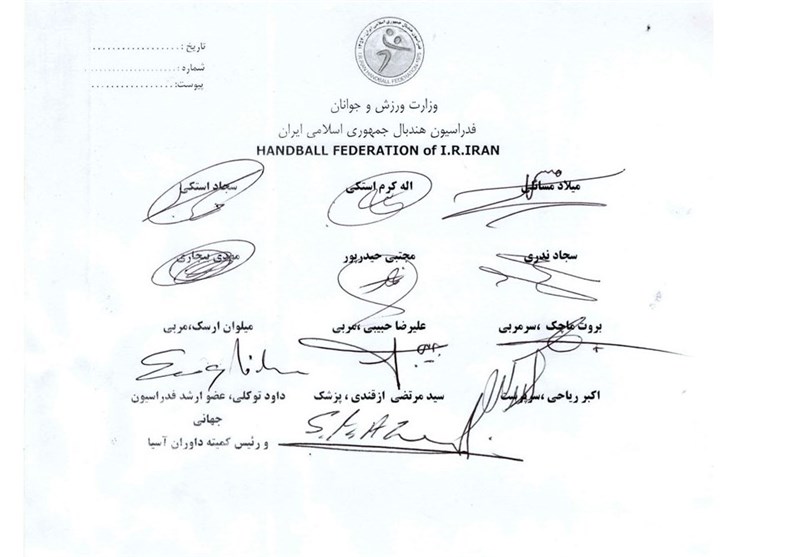 تاریخ :..................
شماره :..................
پیوست:..................
وزارت ورزش و جوانان
فدراسیون هندبال جمهوری اسلامی ایران
HANDBALL FEDERATION of I.R.IRAN
میلاد مسائلی
اله کرم استکی
سجاد استکی
سجاد ندری
مجتبی حیدرپور
مهدی بیجاری
بروت ماچک ،سرمربی
علیرضا حبیبی ،مربی
میلوان ارسک،مربی
اکبر ریاحی ،سرپرست
سید مرتضی ازقندی ، پزشک
داود توکلی، عضو ارشد فدراسیون
جهانی
و رئیس کمیته داوران آسیا